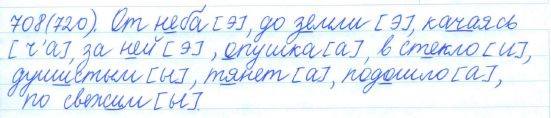 708(720). От неба [э], до земли [э], качаясь
[ч'а], за ней [э], опушка [а], в стекло [и],
душистый [ы], тянет [а], подошло [а],
по свежим [ы].